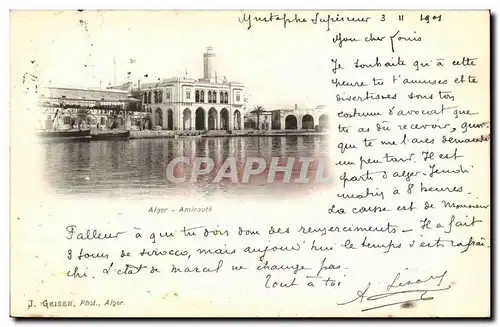 Mustapha Supérieur 3 11 1901
Mon cher Louis
Je souhaite qu'à cette
heure tu t'amuses et te
divertisses sous ton
costume d'avocat que
tu as dû recevoir, quoi
que tu me l'aies demandé
un peu tard. Il est
parti d'Alger Jeudi
matin à 8 heures.
La caisse est de Monsieur
Falleur à qui tu dois donc des remerciements — Il a fait
3 jours de sirocco, mais aujourd'hui le temps s'est rafraî
chi. L'état de Marcel ne change pas.
Tout à toi
CPARAMA
Alger - Amirauté
J. GEISER, Phot., Alger.